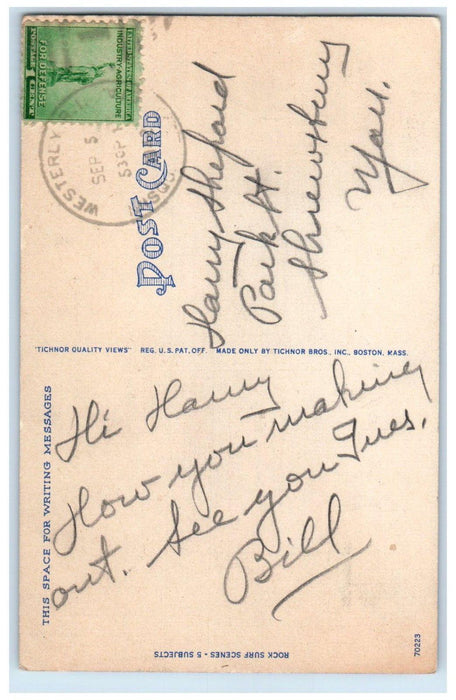 UNITED STATES OF AMERICA
INDUSTRY-AGRICULTURE
FOR DEFENSE
POSTAGE 1 CENT
WESTERLY
SEP 5
530 P
POST CARD
Harry Shepard
Park St.
Shrewsbury
"TICHNOR QUALITY VIEWS" REG. U.S. PAT. OFF. MADE ONLY BY TICHNOR BROS., INC., BOSTON, MASS.
THIS SPACE FOR WRITING MESSAGES
Hi Harry
How you making
out. See you Tues.
Bill
ROCK SURF SCENES - 5 SUBJECTS
70223